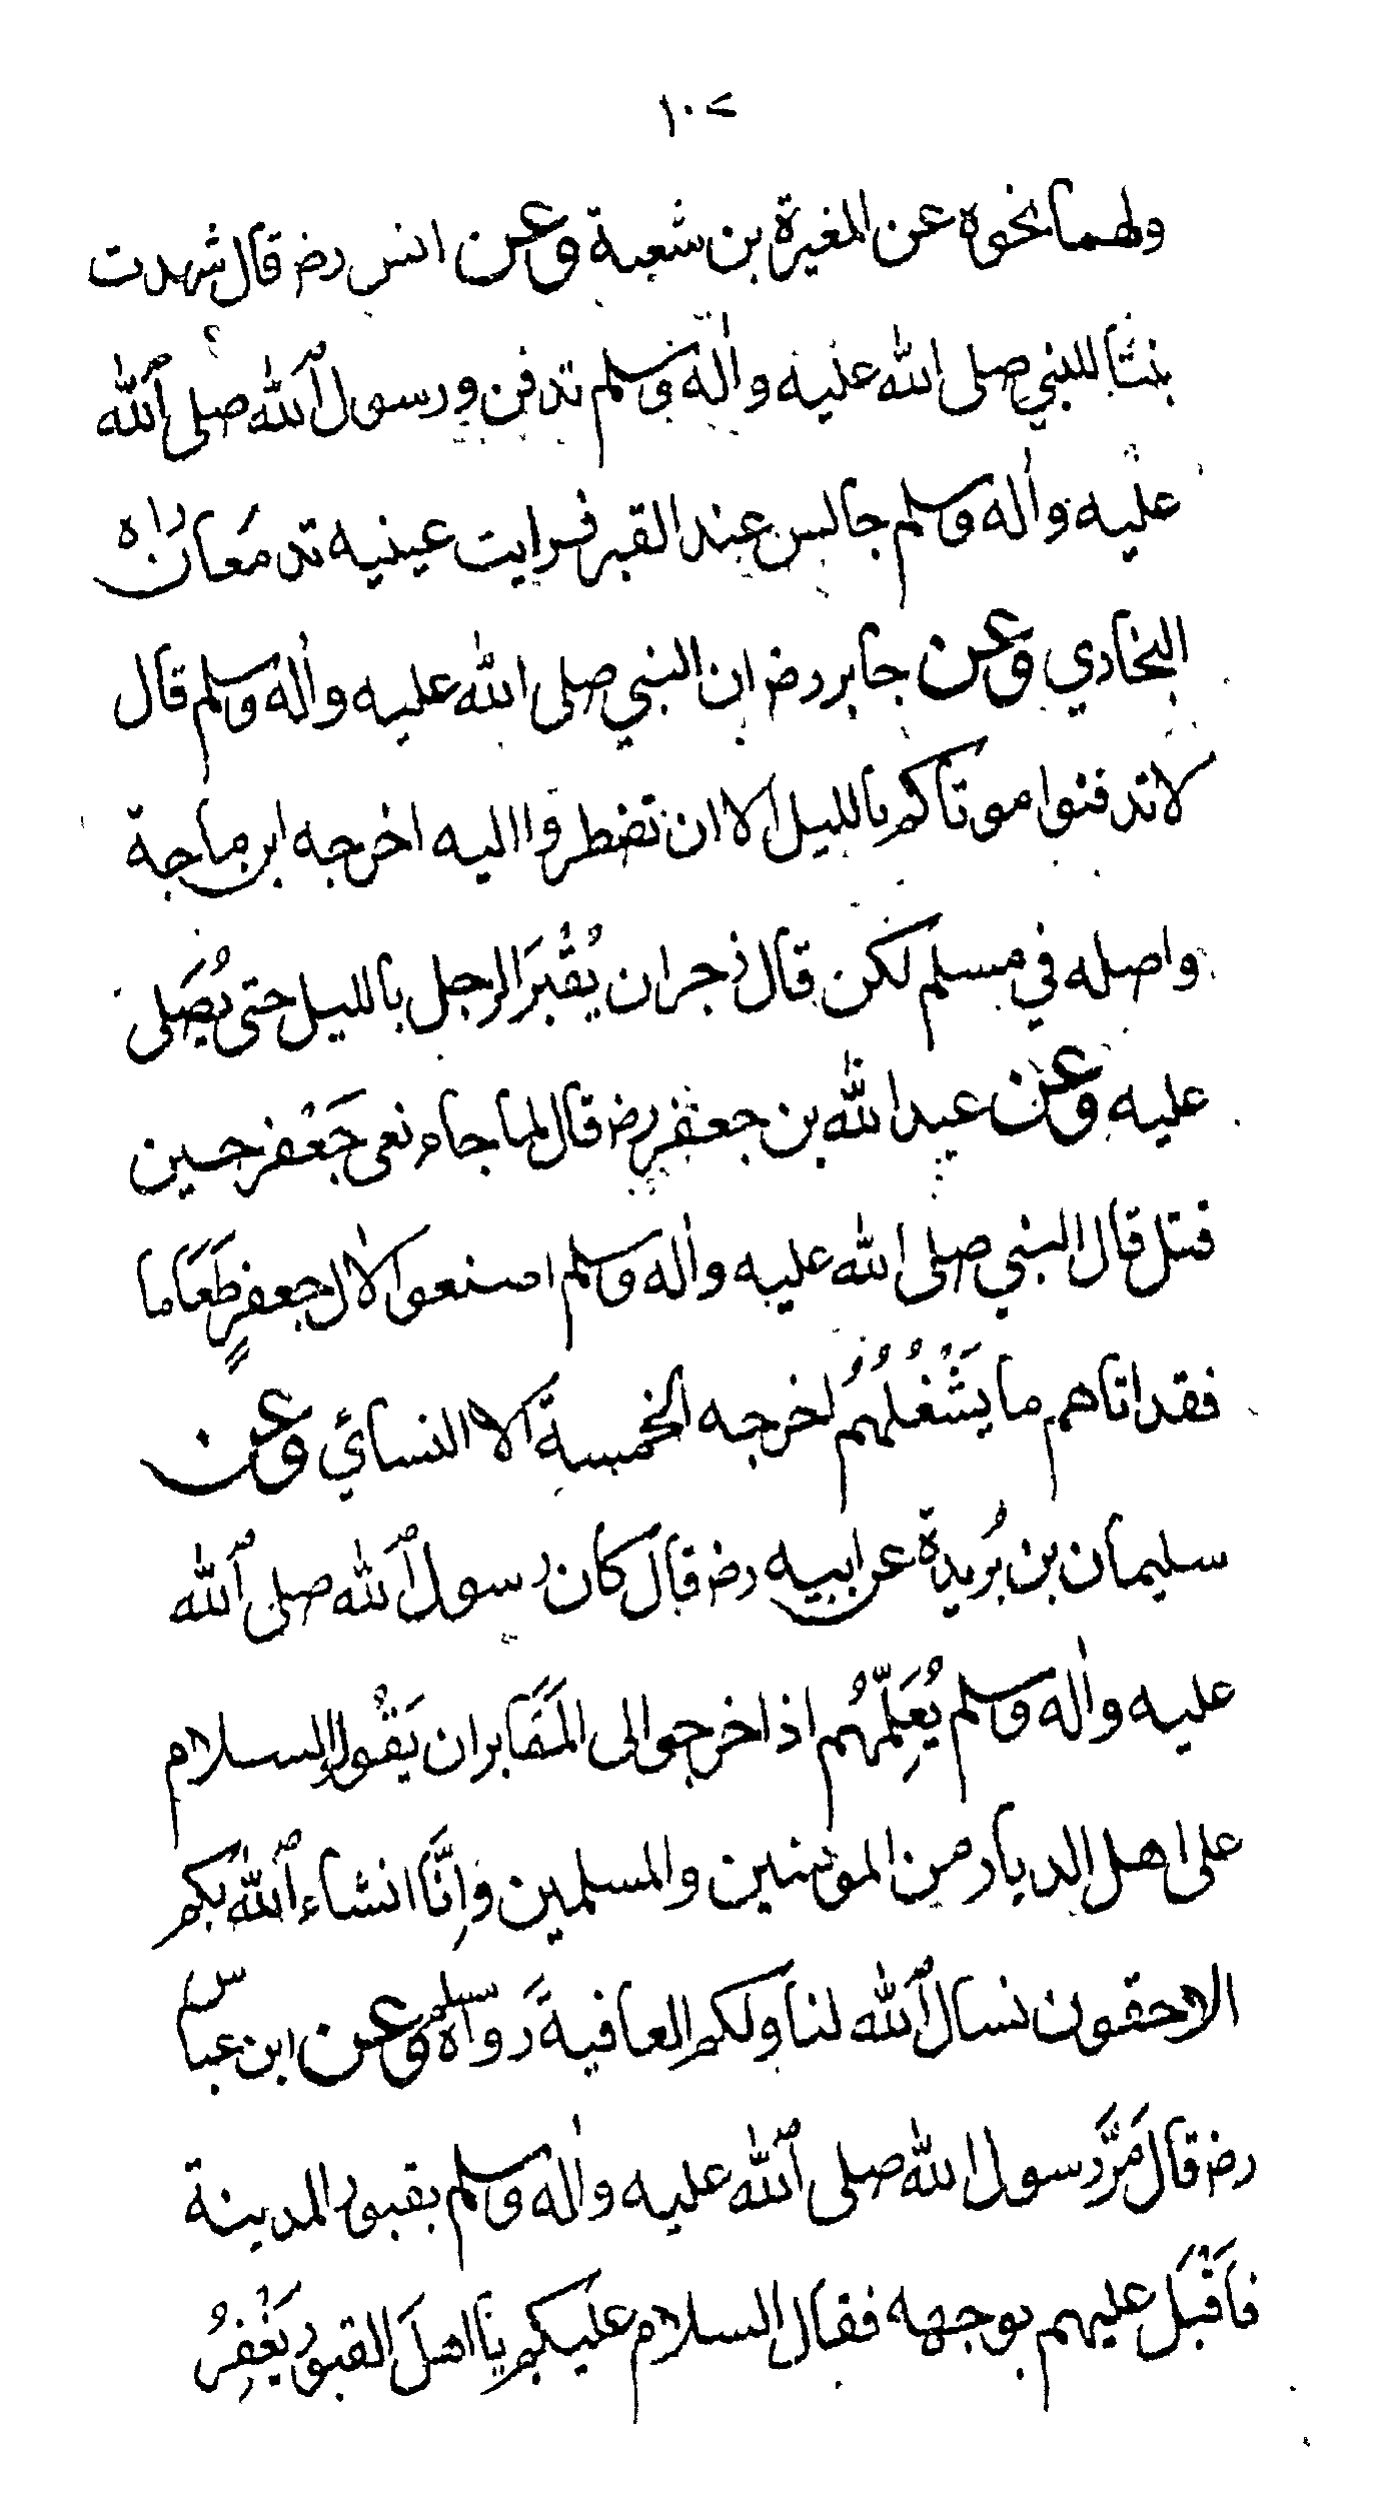 ١٠٢
ولهما نحوه عن المغيرة بن شعبة وعن انس رض قال شهدت
بنتا للنبي صلى الله عليه واله وسلم تدفن ورسول الله صلى الله
عليه واله وسلم جالس عند القبر فرايت عينيه تدمعان رواه
البخاري وعن جابر رض ان النبي صلى الله عليه واله وسلم قال
لا تدفنوا موتاكم بالليل الا ان تضطروا اليه اخرجه ابن ماجة
واصله في مسلم لكن قال زجر ان يُقْبَرَ الرجل بالليل حتى يُصَلى
عليه وعن عبد الله بن جعفر رض قال لما جاء نعى جَعْفر حين
قتل قال النبي صلى الله عليه واله وسلم اصنعوا لال جعفرٍ طَعَاما
فقد اتاهم ما يَشْغُلُهُم اخرجه الخمسة الا النسائي وعن
سليمان بن بُريدة عن ابيه رض قال كان رسول الله صلى الله
عليه واله وسلم يُعَلِّمُهُم اذا خرجوا الى المَقَابر ان يَقْولوا السلام
على اهل الديار من المومنين والمسلمين وَاِنَّا انشاء الله بكم
لاحقون نسال الله لنا ولكم العافيةَ رواه مسلم وعن ابن عباس
رض قال مَرَّ رَسول الله صلى الله عليه واله وسلم بقبور المدينة
فاَقْبَل عليهم بوجهه فقال السلام عليكم يَا اهلَ القبور يَغْفِرُ